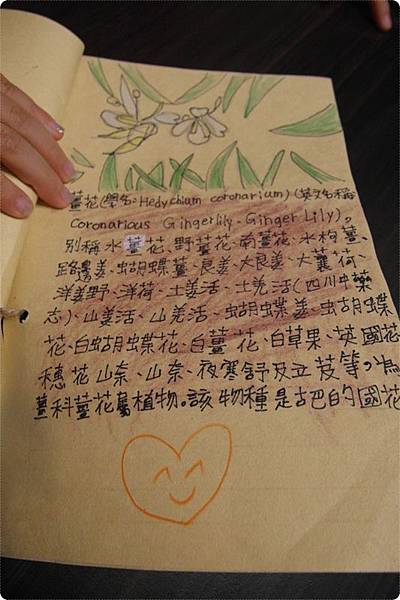 薑花(學名:Hedychium coronarium)(英文名稱
Coronarious Gingerlily、Ginger Lily)。
別稱水薑花、野薑花、南薑花、水枸薑、
路邊姜、蝴蝶薑、良姜、大良姜、大蘘荷、
洋姜野、洋荷、土姜活、土羌活(四川中藥
志)、山姜活、山羌活、蝴蝶姜、蝴蝶
花、白蝴蝶花、白薑花、白草果、英國花
穗花山奈、山奈、夜寒舒及立芨等,為
薑科薑花屬植物。該物種是古巴的國花